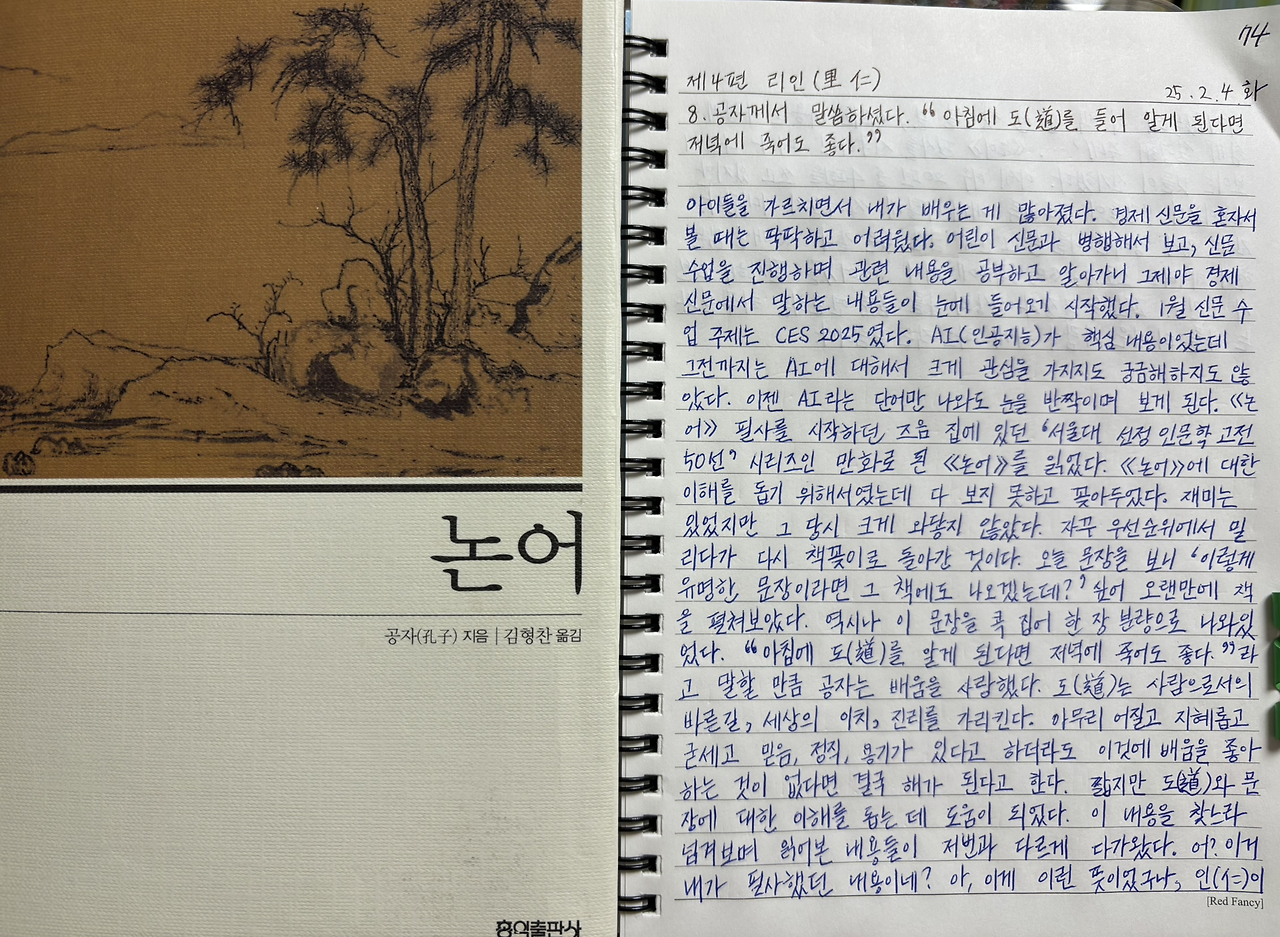 논어
공자(孔子) 지음 | 김형찬 옮김
홍익출판사
74
제4편 리인(里仁)
25.2.4 화
8. 공자께서 말씀하셨다. “아침에 도(道)를 들어 알게 된다면
저녁에 죽어도 좋다.”
아이들을 가르치면서 내가 배우는 게 많아졌다. 경제 신문을 혼자서
볼 때는 딱딱하고 어려웠다. 어린이 신문과 병행해서 보고, 신문
수업을 진행하며 관련 내용을 공부하고 알아가니 그제야 경제
신문에서 말하는 내용들이 눈에 들어오기 시작했다. 1월 신문 수
업 주제는 CES 2025였다. AI(인공지능)가 핵심 내용이었는데
그전까지는 AI에 대해서 크게 관심을 가지지도 궁금해하지도 않
았다. 이젠 AI라는 단어만 나와도 눈을 반짝이며 보게 된다. 《논
어》 필사를 시작하던 즈음 집에 있던 ‘서울대 선정 인문학 고전
50선’ 시리즈인 만화로 된 《논어》를 읽었다. 《논어》에 대한
이해를 돕기 위해서였는데 다 보지 못하고 꽂아두었다. 재미는
있었지만 그 당시 크게 와닿지 않았다. 자꾸 우선순위에서 밀
리다가 다시 책꽂이로 돌아간 것이다. 오늘 문장을 보니 ‘이렇게
유명한 문장이라면 그 책에도 나오겠는데?’ 싶어 오랜만에 책
을 펼쳐보았다. 역시나 이 문장을 콕 집어 한 장 분량으로 나와있
었다. “아침에 도(道)를 알게 된다면 저녁에 죽어도 좋다.”라
고 말할 만큼 공자는 배움을 사랑했다. 도(道)는 사람으로서의
바른길, 세상의 이치, 진리를 가리킨다. 아무리 어질고 지혜롭고
굳세고 믿음, 정직, 용기가 있다고 하더라도 이것에 배움을 좋아
하는 것이 없다면 결국 해가 된다고 한다. 짧지만 도(道)와 문
장에 대한 이해를 돕는 데 도움이 되었다. 이 내용을 찾느라
넘겨보며 읽어본 내용들이 저번과 다르게 다가왔다. 어? 이거
내가 필사했던 내용이네? 아, 이게 이런 뜻이었구나, 인(仁)이
[Red Fancy]